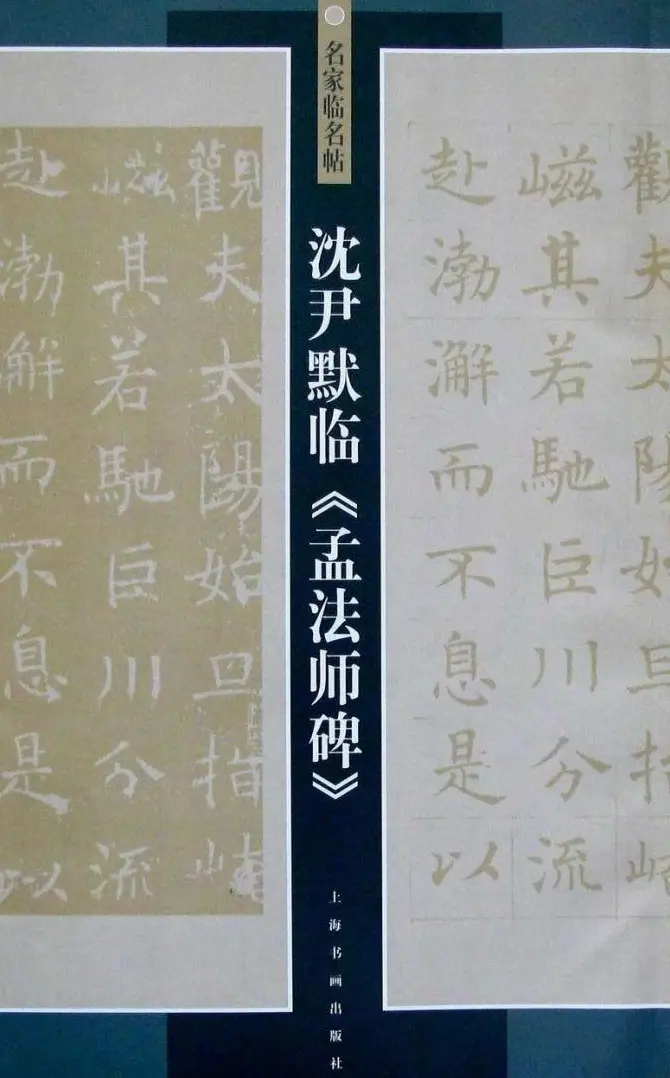 名家临名帖
沈尹默临《孟法师碑》
上海书画出版社
觀夫太陽始旦指崦
嵫其若馳巨川分流
赴渤澥而不息是以
觀夫太陽始旦指崦
嵫其若馳巨川分流
赴渤澥而不息是以